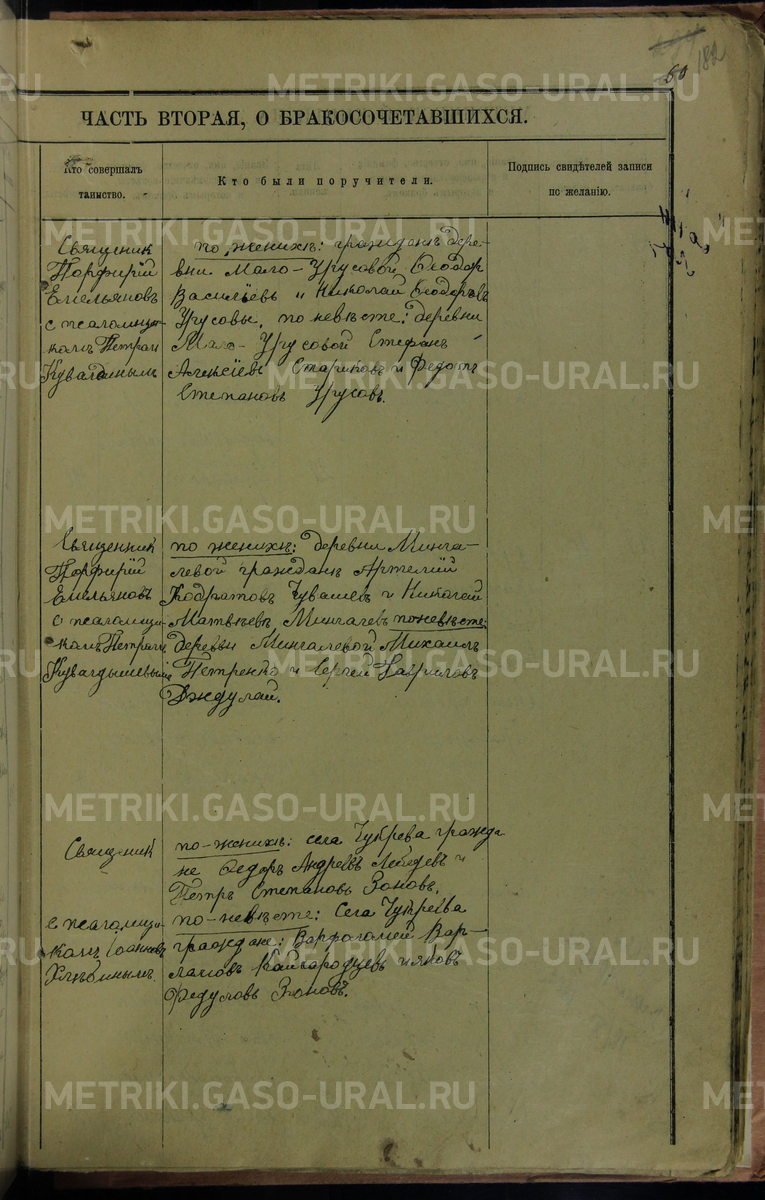 60 182
ЧАСТЬ ВТОРАЯ, О БРАКОСОЧЕТАВШИХСЯ.
Кто совершалъ таинство.
Кто были поручители.
Подпись свидѣтелей записи по желанію.
Священик
Порфирій
Емельяновъ
с псаломщи-
комъ Петром
по женихѣ: граждане дере-
вни Мало-Урусовой Ѳеодор
Васильевъ и Николай Ѳеодоровъ
Урусовы, по невѣсте: деревни
Мало-Урусовой Стефанъ
Алексіевъ Стариковъ и Федотъ
Степановъ Урусовъ.
Священник
Порфирій
Емельяновъ
с псаломщи-
комъ Петром
по женихѣ: деревни Минга-
левой гражданѣ Артемій
Кодратовъ Чувашев и Николай
Матвѣевъ Мингалевъ по невѣсте:
деревни Мингалевой Михаилъ
Петренко и Сергей Гавриловъ
Священик
с псаломщи-
комъ Іоанномъ
по-женихѣ: села Чубрева гражда
не Ѳедоръ Андреевъ Лебедевъ и
Петръ Степановъ Зоновъ,
по-невѣсте: Села Чубрева
граждане: Варфоломей Вар-
ламовъ Кайгородцев и Яковъ
Федуловъ Зоновъ.
METRIKI.GASO-URAL.RU